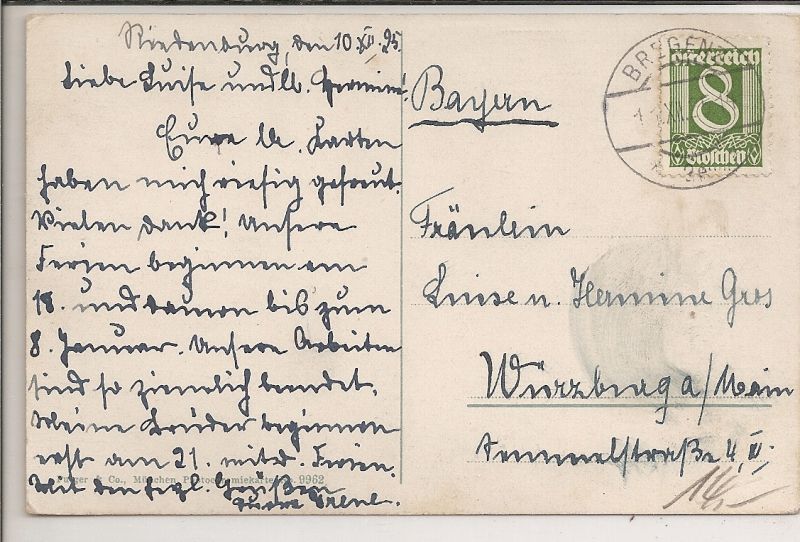 Riedenburg, den 10.XII.25.
Liebe Luise und lb. Hermine!
Eure lb. Karten
haben mich riesig gefreut.
Vielen Dank! Unsere
Ferien beginnen am
18. und dauern bis zum
8. Januar. Unsere Arbeiten
sind so ziemlich beendet.
Meine Brüder beginnen
erst am 21. mit d. Ferien.
Mit den herzl. Grüßen
Eure Irene.
Purger & Co., München Photochromiekarte No. 9962
BREGENZ
österreich
8
Groschen
Bayern
Fräulein
Luise u. Hermine Gros
Würzburg a/Main
Semmelstraße 4, II.
14,-